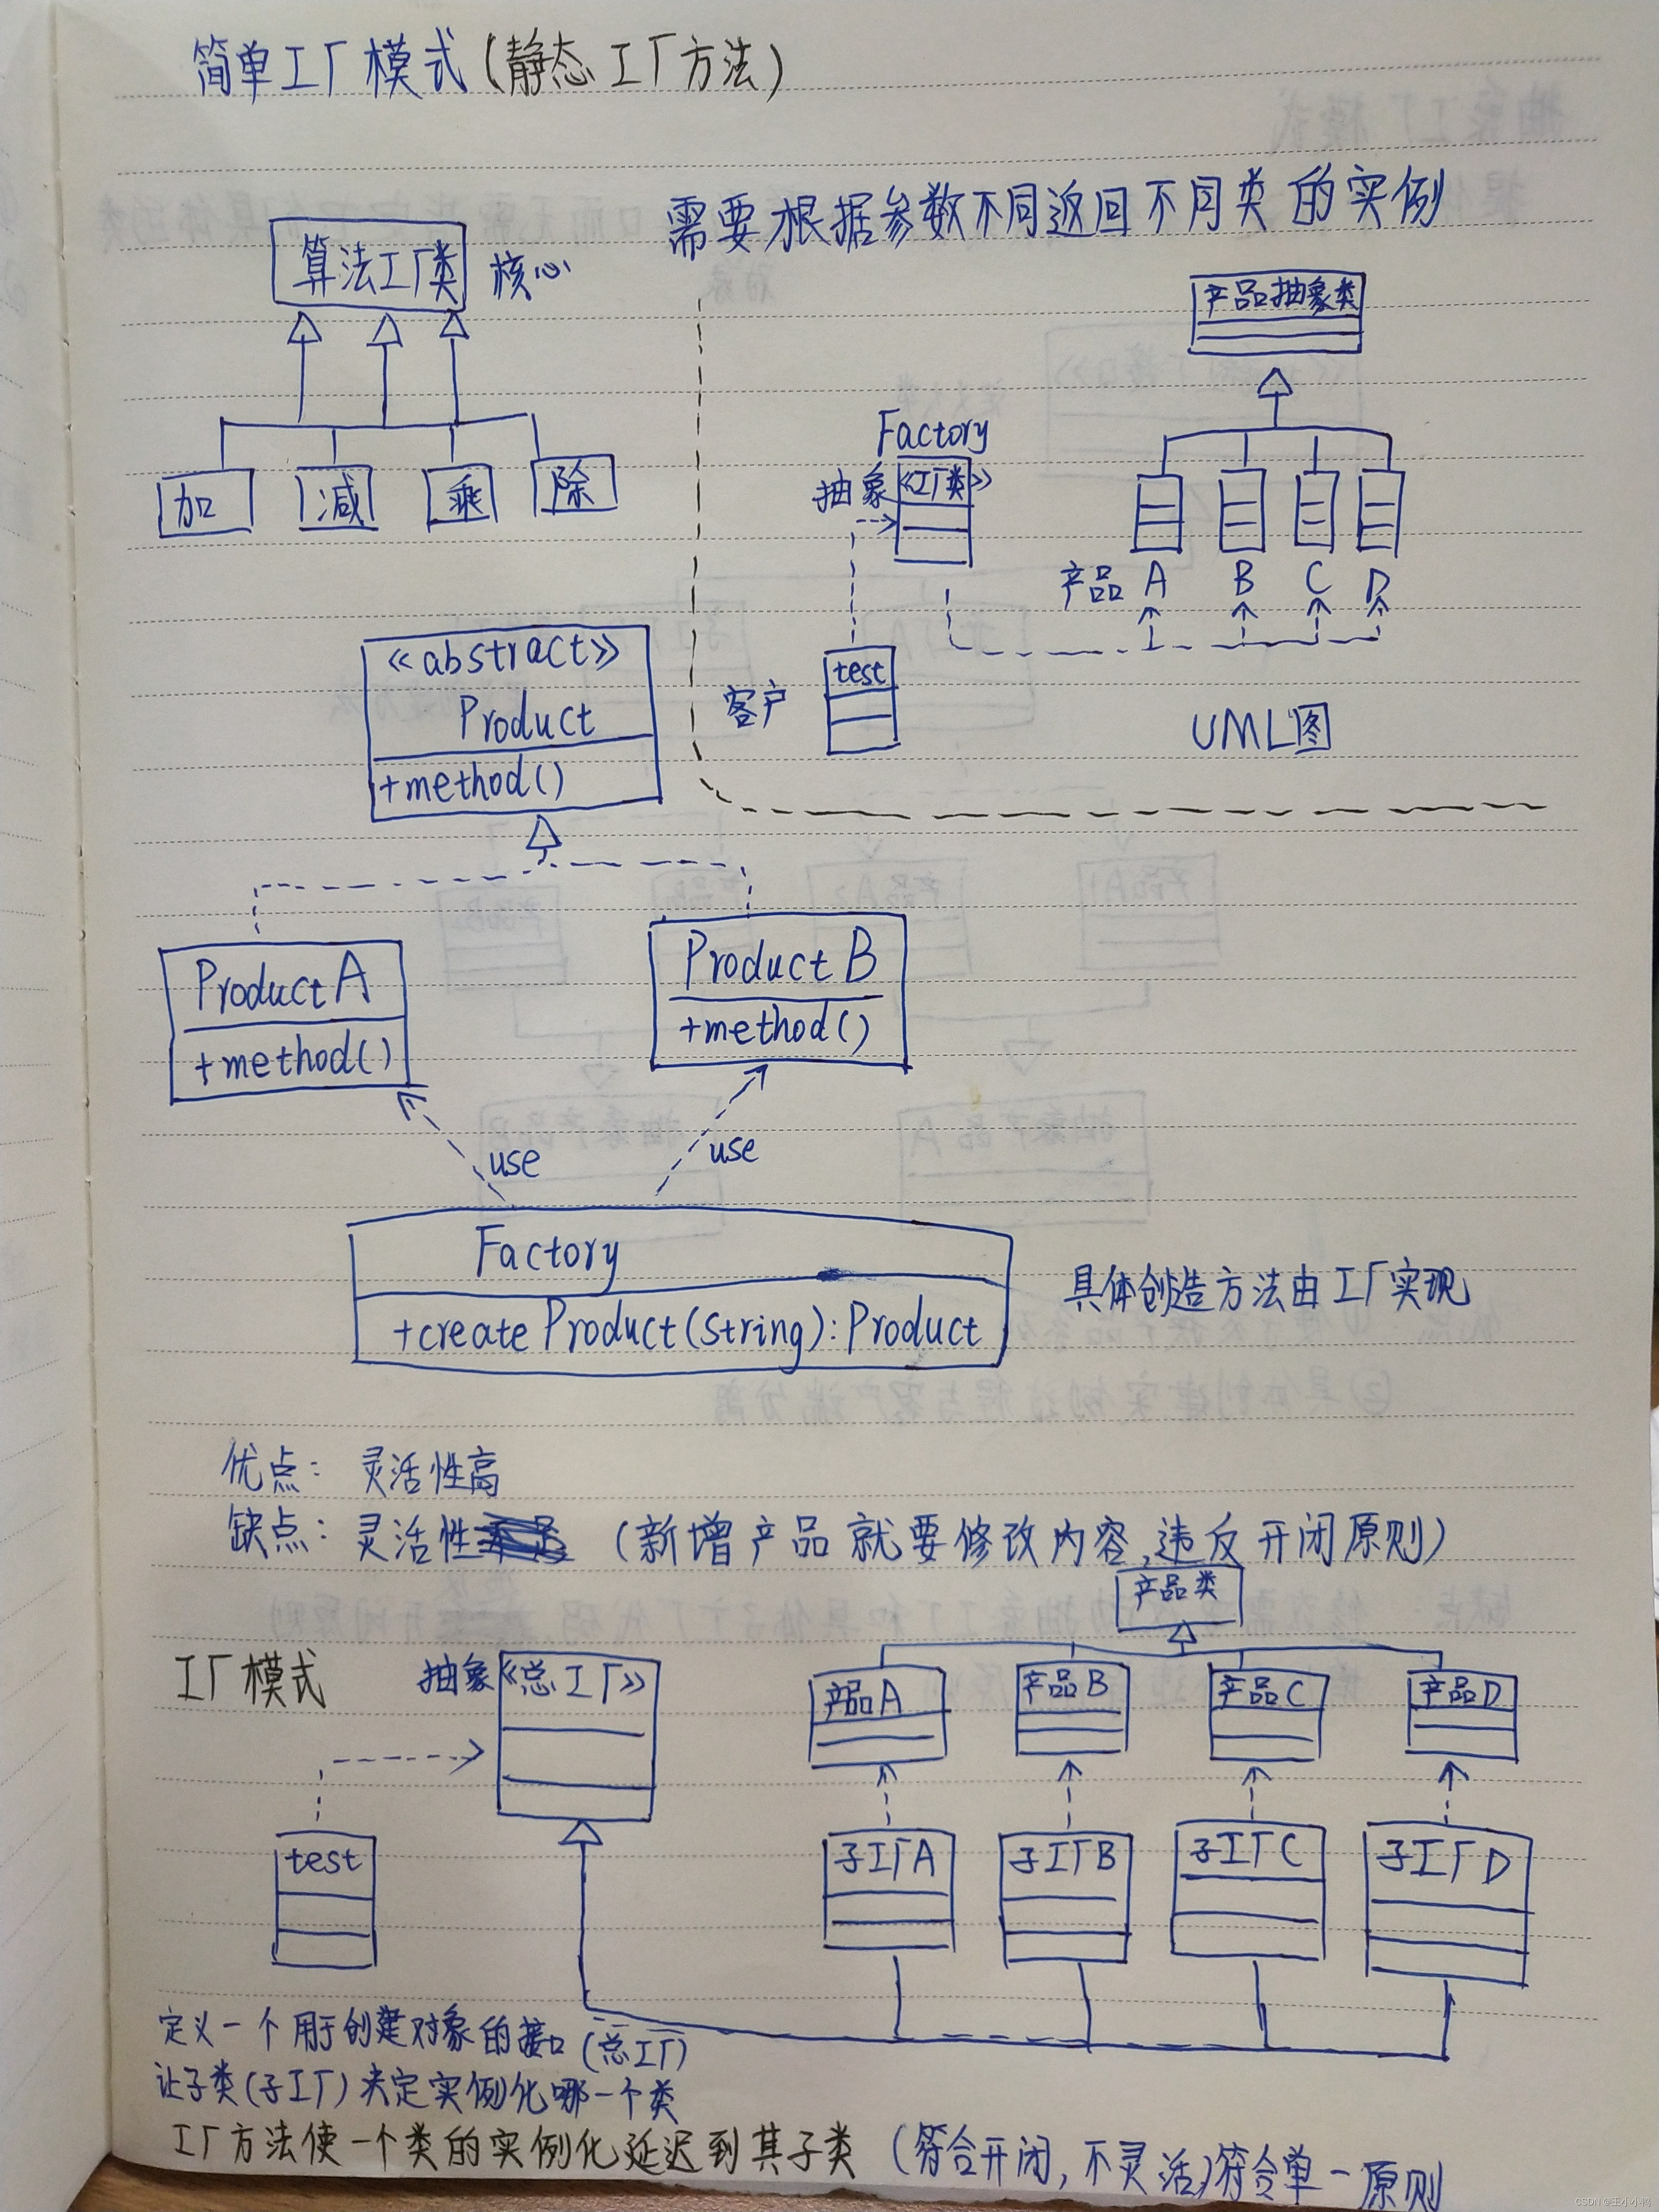 简单工厂模式(静态工厂方法)
需要根据参数不同返回不同类的实例
算法工厂类 核心
加 减 乘 除
产品抽象类
Factory
抽象 《工厂类》
产品 A B C D
客户 test
UML图
《abstract》
Product
+method()
ProductA
+method()
ProductB
+method()
use use
Factory
+createProduct(String):Product
具体创造方法由工厂实现
优点: 灵活性高
缺点: 灵活性 (新增产品就要修改内容,违反开闭原则)
产品类
工厂模式
抽象《总工厂》
产品A 产品B 产品C 产品D
test
子工厂A 子工厂B 子工厂C 子工厂D
定义一个用于创建对象的接口(总工厂)
让子类(子工厂)决定实例化哪一个类
工厂方法使一个类的实例化延迟到其子类 (符合开闭,不灵活)符合单一原则
CSDN @王小小鸭